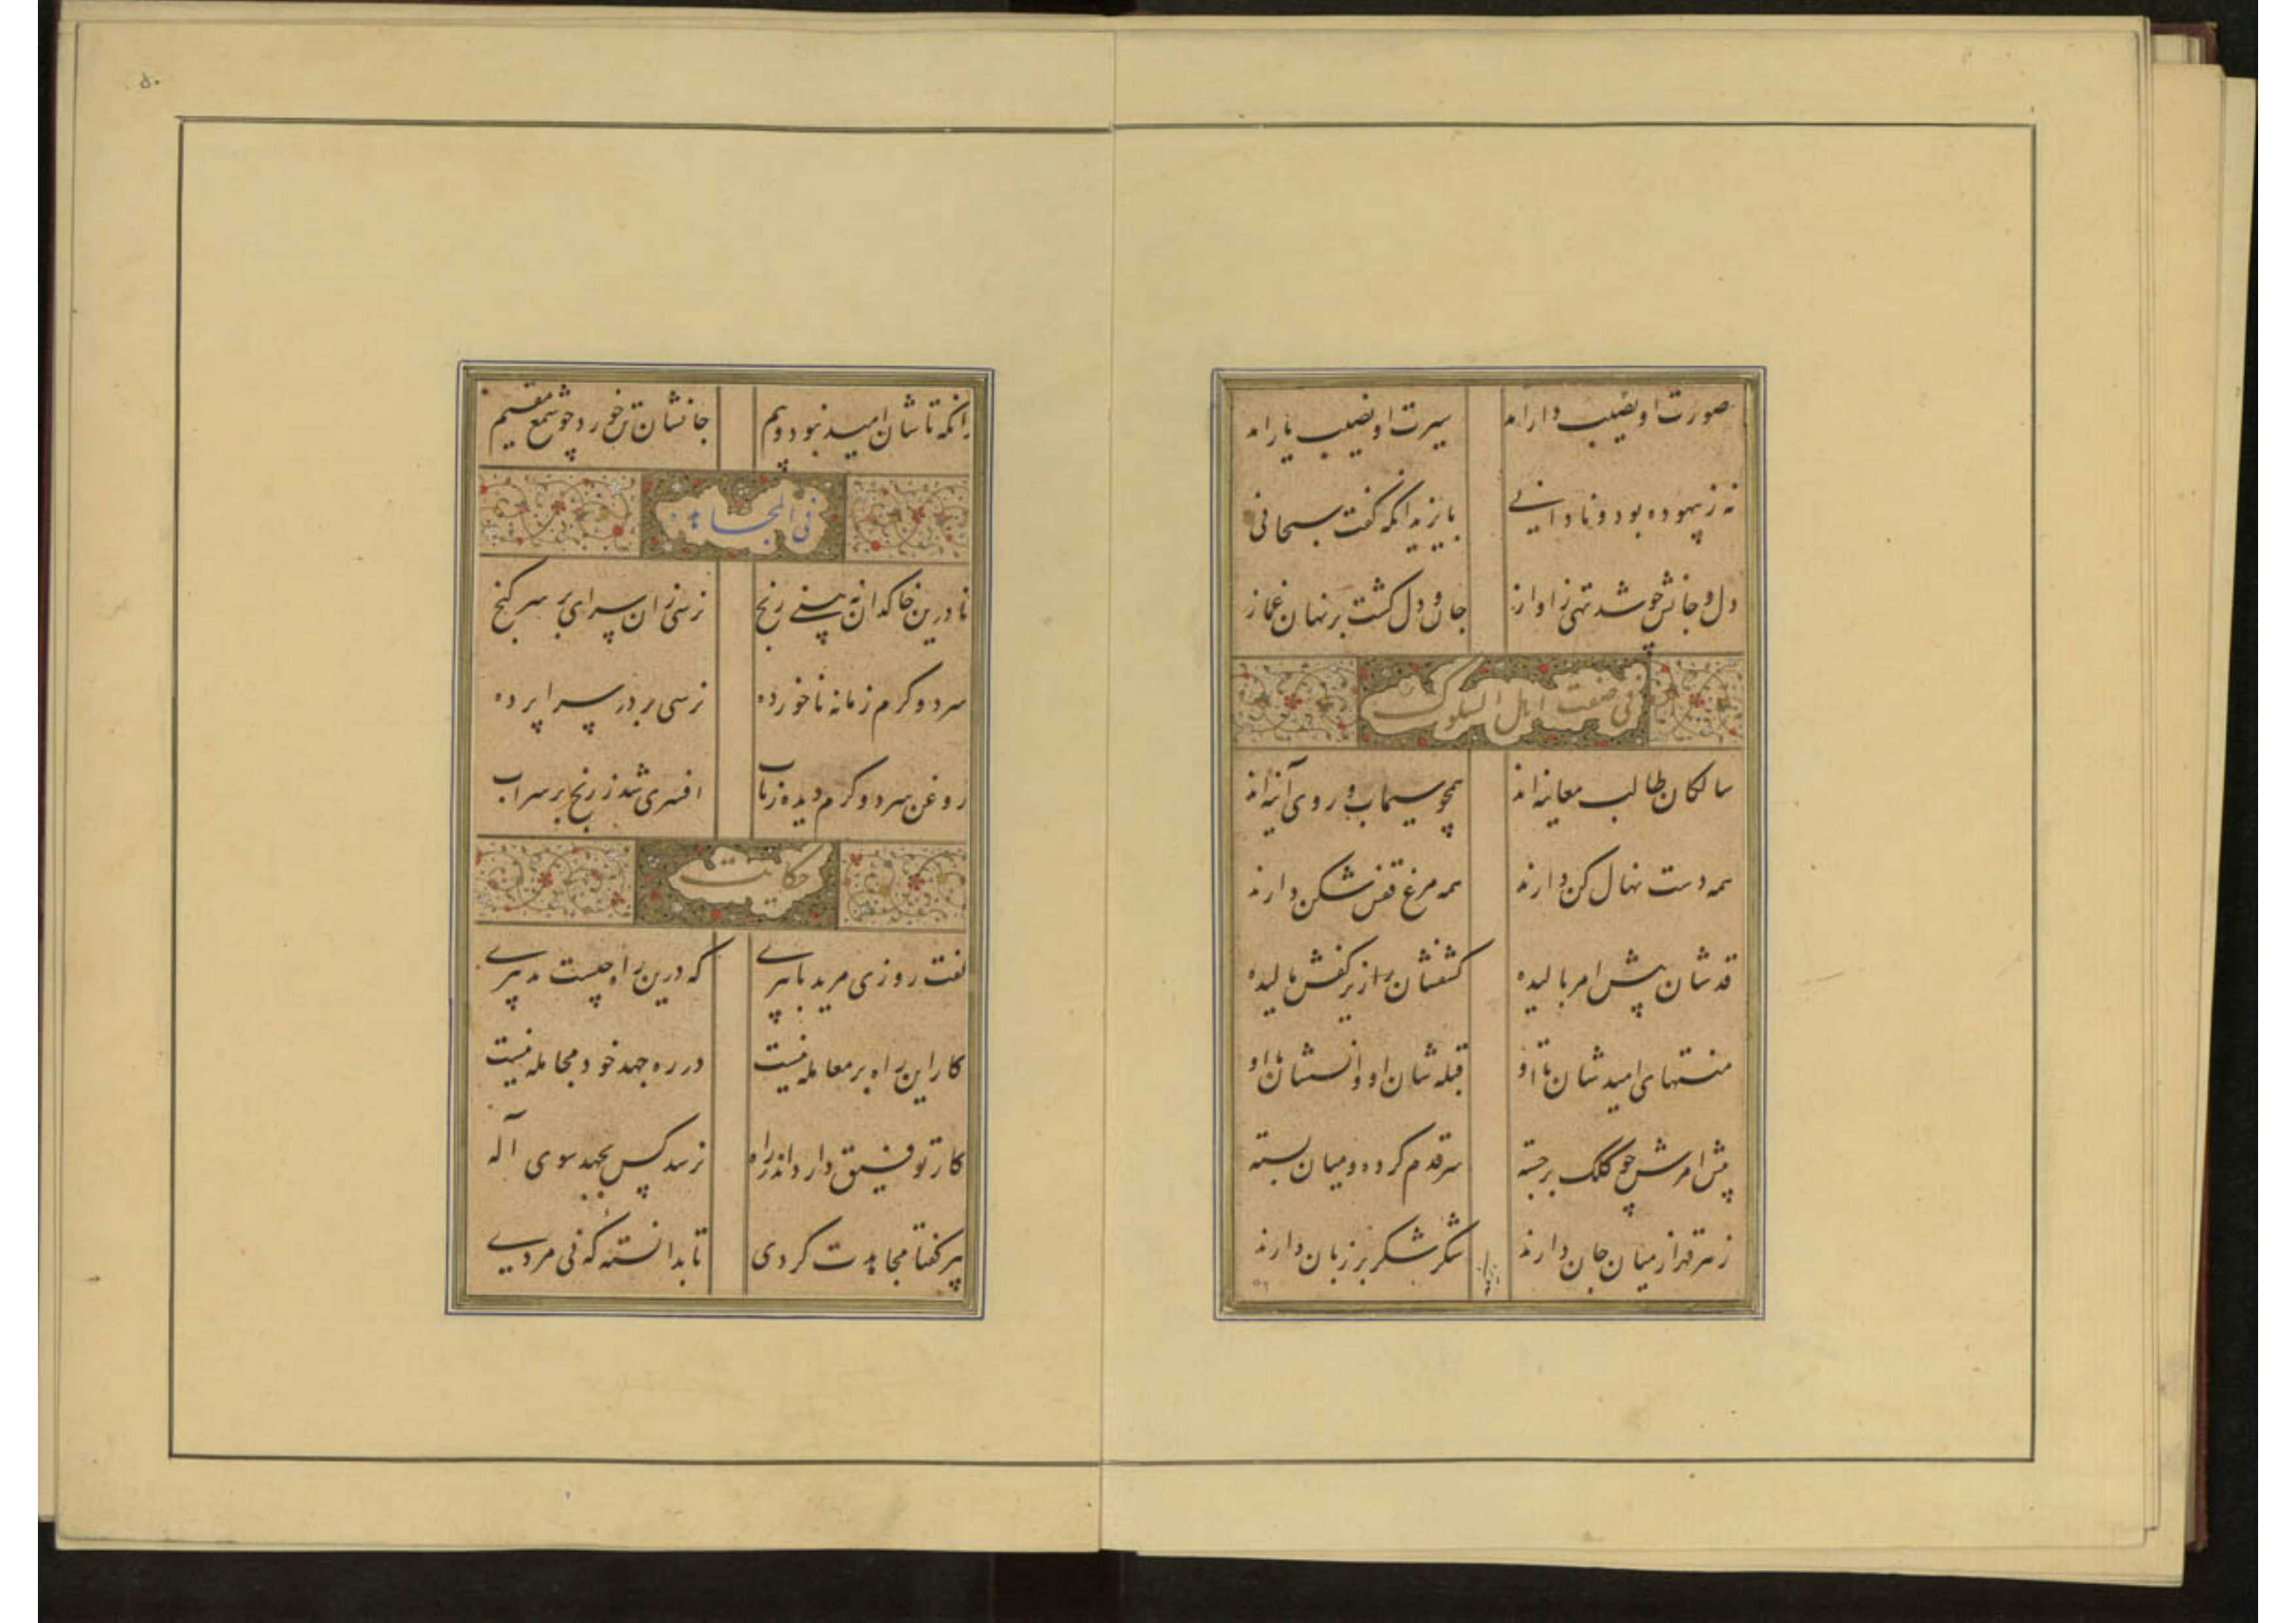 صورت او نصیب دار آمد سیرت او نصیب یار آمد
نه ز بیهوده بود و نادانی بایزید آنکه گفت سبحانی
دل و جانش چو شد تهی ز آواز جان و دل گشت بر نهان غماز
فی صفت اهل السلوک
سالکان طالب معاینه‌اند همچو سیماب و روی آینه‌اند
همه دست نهال کن دارند همه مرغ قفس شکن دارند
قدشان پیش امر بالیده کشفشان راز زیر کفش مالیده
منتهای امیدشان تا او قبله‌شان او و انسشان با او
پیش امرش چو کلک برجسته سر قدم کرده و میان بسته
زهر قهر از میان جان دارند شکر شکر بر زبان دارند
زانکه
۵۶
۵۰
زانکه تاشان امید نبود و بیم جانشان تن خورد چو شمع مقیم
فی المجاهده
تا درین خاکدان نه بینی رنج نرسی زان سرای بر سر گنج
سرد و گرم زمانه ناخورده نرسی بر در سراپرده
روغن سرد و گرم دیده ز تاب افسری شد ز رنج بر سر آب
حکایت
گفت روزی مرید با پیری که درین راه چیست تدبیری
کار این راه بر معامله نیست در ره جهد خود مجامله نیست
کار توفیق دارد اندر راه نرسد کس بجهد سوی آله
پیر گفتا مجاهدت کردی تا بدانسته که نی مردی